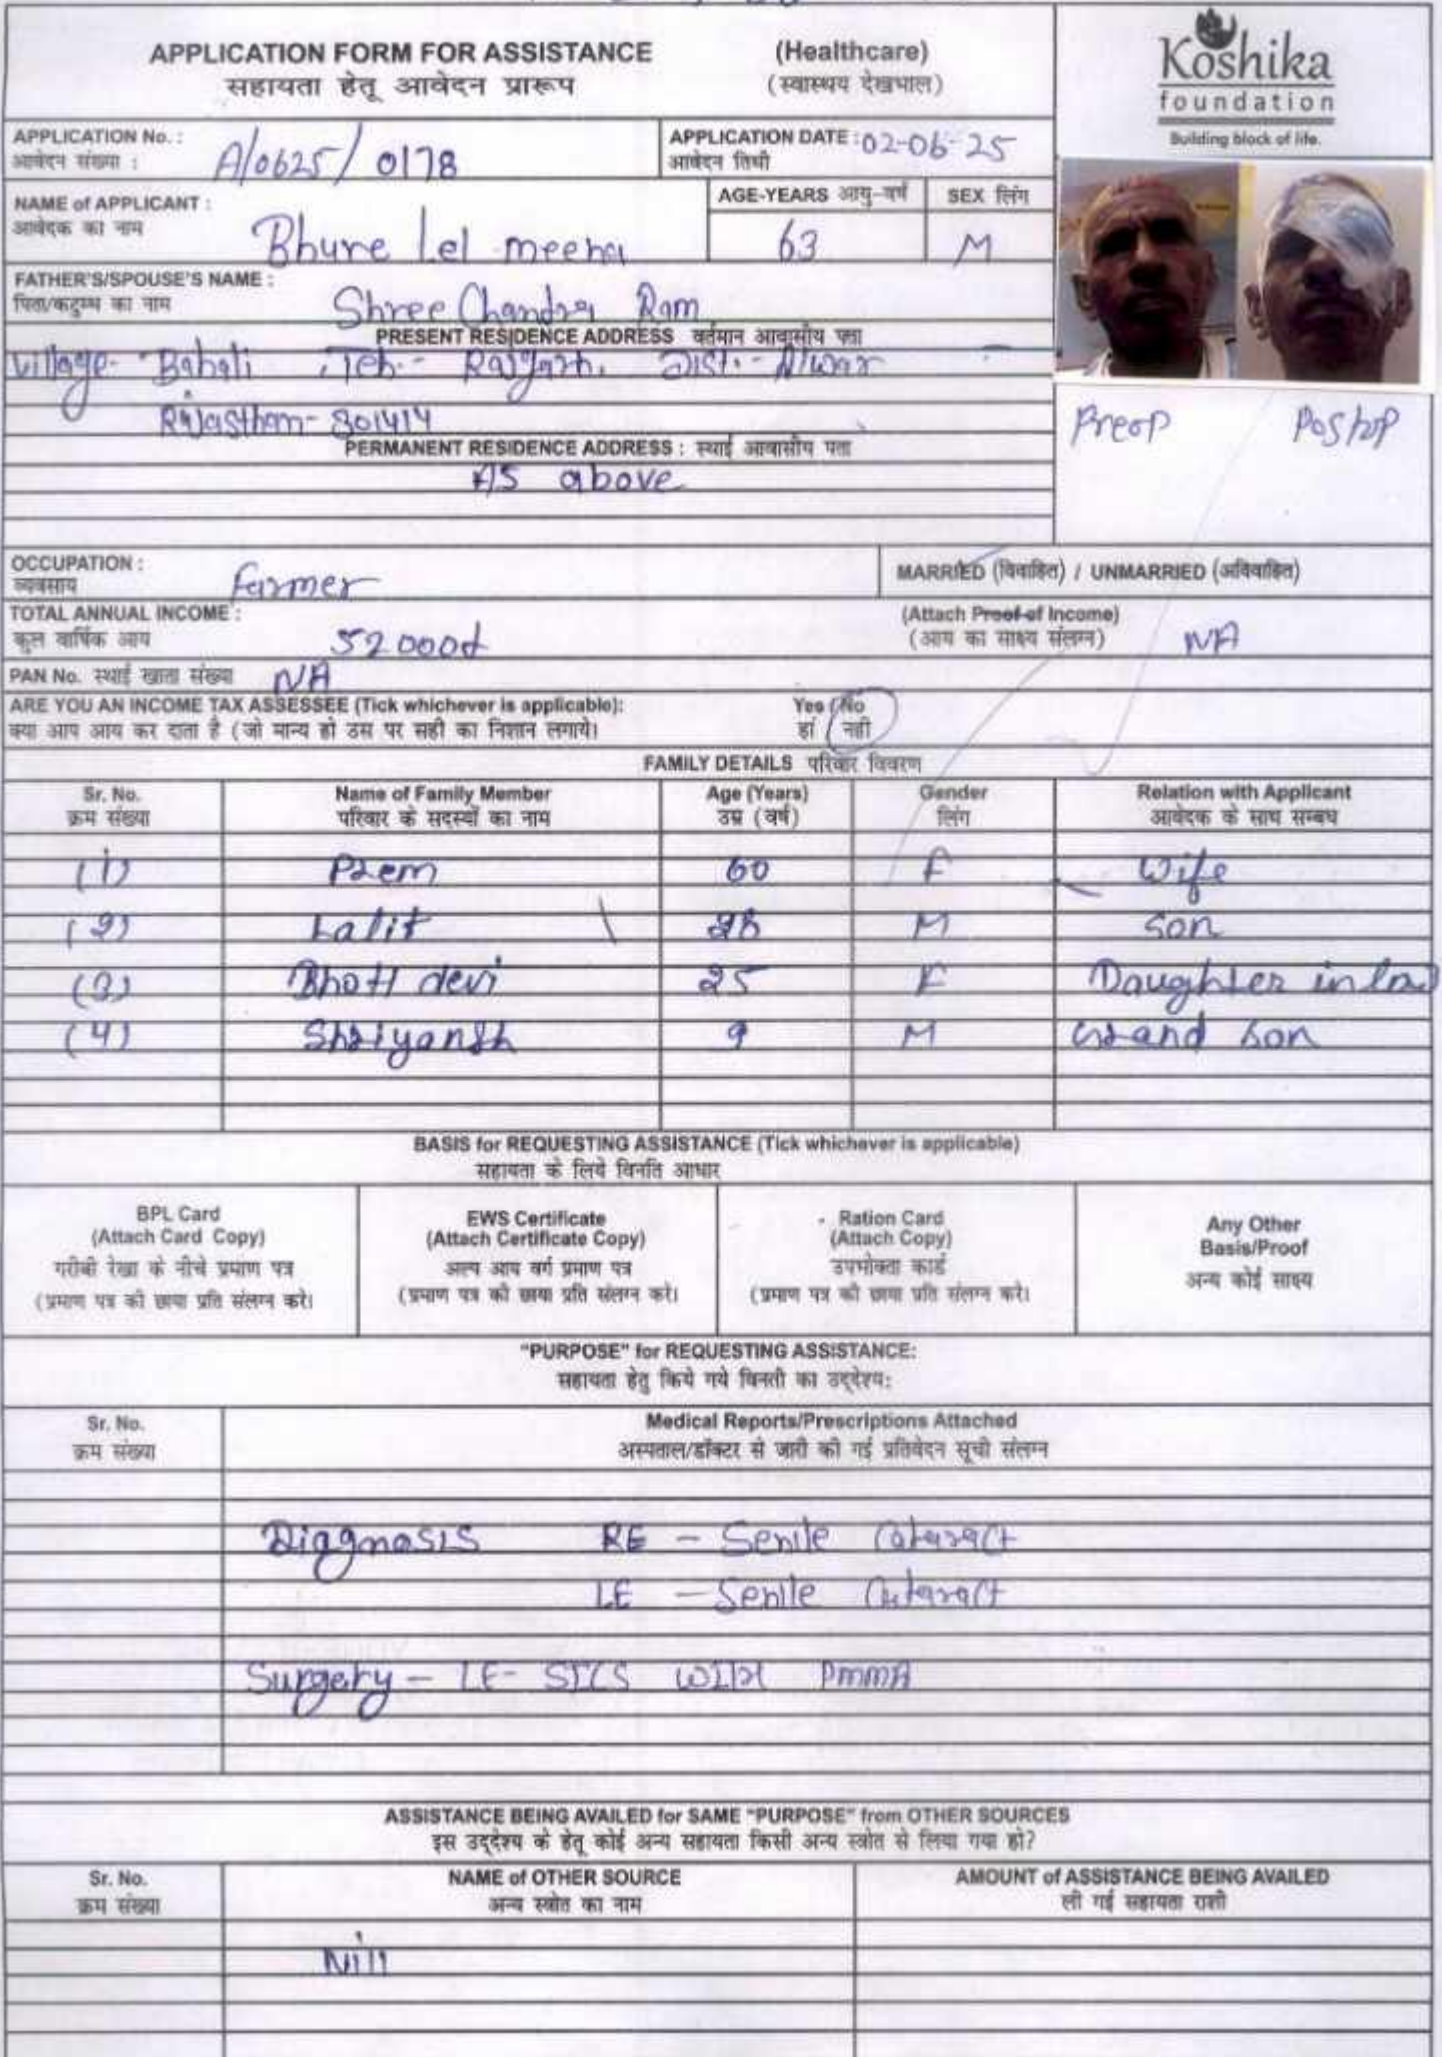 APPLICATION FORM FOR ASSISTANCE (Healthcare)
सहायता हेतू आवेदन प्रारूप (स्वास्थय देखभाल)
Koshika
foundation
Building block of life.
APPLICATION No. : A/0625/0178 APPLICATION DATE : 02-06-25
आवेदन संख्या : आवेदन तिथी
NAME of APPLICANT : AGE-YEARS आयु-वर्ष SEX लिंग
आवेदक का नाम Bhure Lal meena 63 M
FATHER'S/SPOUSE'S NAME :
पिता/कटुम्ब का नाम Shree Chandra Ram
PRESENT RESIDENCE ADDRESS वर्तमान आवासीय पता
Village- Babali , Teh.- Rajgarh, Dist.- Alwar
Rajasthan- 301414
Preop Postop
PERMANENT RESIDENCE ADDRESS : स्थाई आवासीय पता
AS above
OCCUPATION : Farmer MARRIED (विवाहित) / UNMARRIED (अविवाहित)
व्यवसाय
TOTAL ANNUAL INCOME : (Attach Proof of Income)
कुल वार्षिक आय 52000 (आय का साक्ष्य संलग्न) NA
PAN No. स्थाई खाता संख्या NA
ARE YOU AN INCOME TAX ASSESSEE (Tick whichever is applicable): Yes / No
क्या आप आय कर दाता है (जो मान्य हो उस पर सही का निशान लगाये। हां / नही
FAMILY DETAILS परिवार विवरण
Sr. No. Name of Family Member Age (Years) Gender Relation with Applicant
क्रम संख्या परिवार के सदस्यों का नाम उम्र (वर्ष) लिंग आवेदक के साथ सम्बध
(1) Prem 60 F Wife
(2) Lalit 28 M Son
(3) Bhoti devi 25 F Daughter in law
(4) Shriyansh 9 M Grand Son
BASIS for REQUESTING ASSISTANCE (Tick whichever is applicable)
सहायता के लिये विनति आधार
BPL Card
(Attach Card Copy)
गरीबी रेखा के नीचे प्रमाण पत्र
(प्रमाण पत्र की छाया प्रति संलग्न करे।
EWS Certificate
(Attach Certificate Copy)
अल्प आय वर्ग प्रमाण पत्र
(प्रमाण पत्र की छाया प्रति संलग्न करे।
Ration Card
(Attach Copy)
उपभोक्ता कार्ड
(प्रमाण पत्र की छाया प्रति संलग्न करे।
Any Other
Basis/Proof
अन्य कोई साक्ष्य
"PURPOSE" for REQUESTING ASSISTANCE:
सहायता हेतु किये गये विनती का उद्देश्य:
Sr. No. Medical Reports/Prescriptions Attached
क्रम संख्या अस्पताल/डॉक्टर से जारी की गई प्रतिवेदन सूची संलग्न
Diagnosis RE - Senile Cataract
LE - Senile Cataract
Surgery - LE- SICS WITH PMMA
ASSISTANCE BEING AVAILED for SAME "PURPOSE" from OTHER SOURCES
इस उद्देश्य के हेतू कोई अन्य सहायता किसी अन्य स्त्रोत से लिया गया हो?
Sr. No. NAME of OTHER SOURCE AMOUNT of ASSISTANCE BEING AVAILED
क्रम संख्या अन्य स्त्रोत का नाम ली गई सहायता राशी
Nill